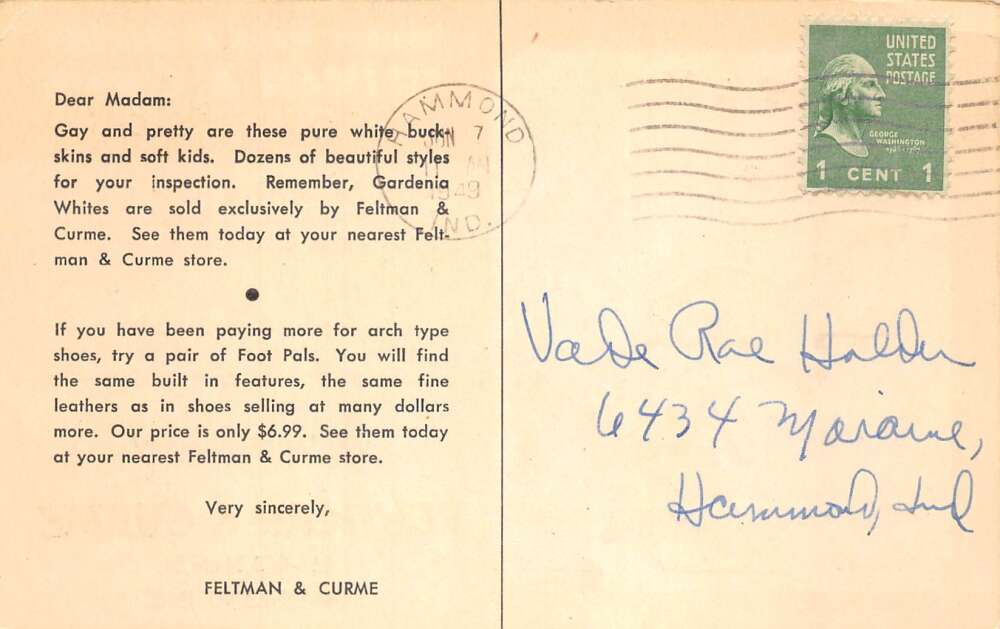 Dear Madam:
Gay and pretty are these pure white buck-
skins and soft kids. Dozens of beautiful styles
for your inspection. Remember, Gardenia
Whites are sold exclusively by Feltman &
Curme. See them today at your nearest Felt-
man & Curme store.
If you have been paying more for arch type
shoes, try a pair of Foot Pals. You will find
the same built in features, the same fine
leathers as in shoes selling at many dollars
more. Our price is only $6.99. See them today
at your nearest Feltman & Curme store.
Very sincerely,
FELTMAN & CURME
HAMMOND
JUN 7
11 AM
1949
IND.
UNITED
STATES
POSTAGE
GEORGE
WASHINGTON
1 CENT 1
Rae Holder
6434
Hammond, Ind